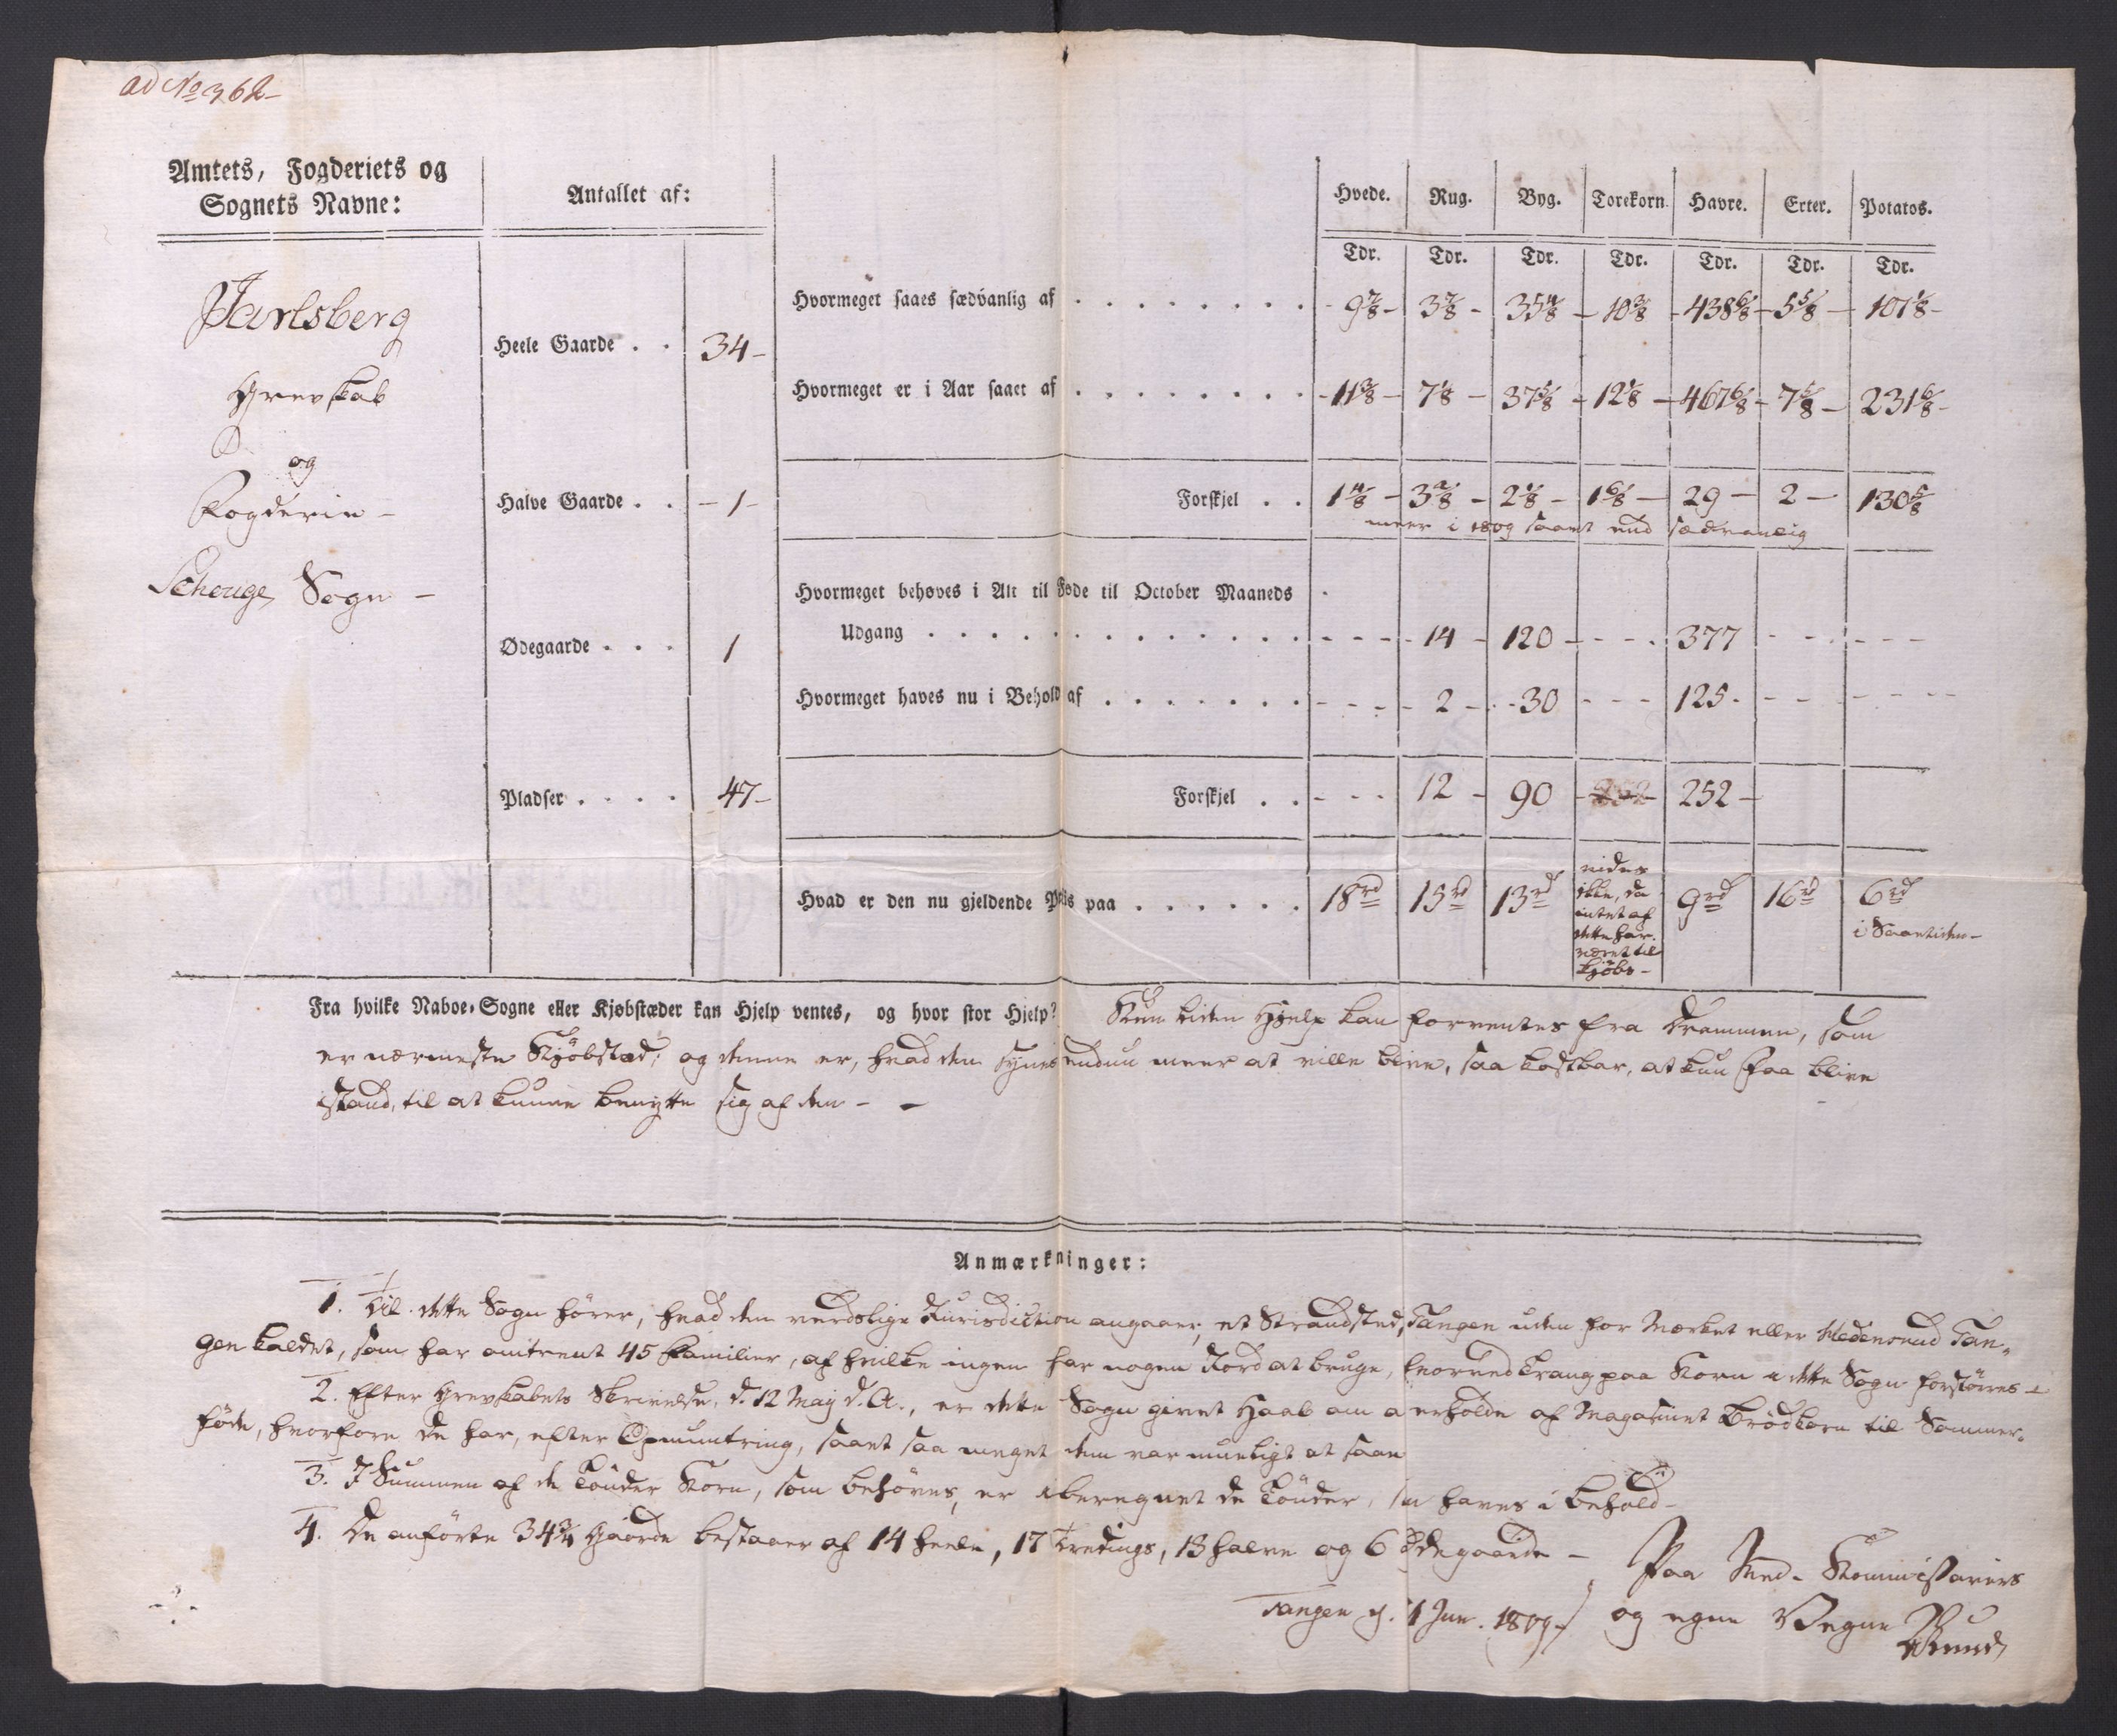 ad No 362
Amtets, Fogderiets og
Sognets Navne:
Antallet af:
Hvede. Rug. Byg. Torekorn. Havre. Erter. Potatos.
Tdr. Tdr. Tdr. Tdr. Tdr. Tdr. Tdr.
Jarlsberg
Grevskab
og
Fogderie -
Schouge Sogn -
Heele Gaarde . . 34 -
Halve Gaarde . . - 1 -
Ødegaarde . . . 1
Pladser . . . . 47 -
Hvormeget saaes sædvanlig af . . . . . . . . 9 7/8 - 3 7/8 - 35 4/8 - 10 3/8 - 438 6/8 - 5 5/8 - 107 1/8 -
Hvormeget er i Aar saaet af . . . . . . . . 11 3/8 - 7 1/8 - 37 5/8 - 12 1/8 - 467 6/8 - 7 5/8 - 231 6/8 -
Forskjel . . 1 4/8 - 3 2/8 - 2 1/8 - 1 6/8 - 29 - 2 - 130 5/8
meer i 1809 saaet end sædvanlig
Hvormeget behøves i Alt til Føde til October Maaneds
Udgang . . . . . . . . . . . . . - - - 14 - 120 - - - 377 - - - - -
Hvormeget haves nu i Behold af . . . . . . . - - - 2 - 30 - - - 125 - - - - - -
Forskjel . . - - - 12 - 90 - 252 - 252 -
Hvad er den nu gjeldende Priis paa . . . . . . 18 rd 15 rd 13 rd
vides
ikke, da
intet af
dette har
været til
Kjöbs -
9 rd 16 rd 6 rd
i Saaetiden -
Fra hvilke Naboe-Sogne eller Kjøbstæder kan Hjelp ventes, og hvor stor Hjelp? Kun liden Hjelp kan forventes fra Drammen, som
er nærmeste Kjöbstæd; og denne er, hvad den synes endnu meer at ville blive, saa kostbar, at kun faa blive
istand, til at kunne benytte sig af den - -
Anmærkninger:
1. Til dette Sogn hører, hvad den verdslige Jurisdiction angaaer, et Strandsted, Tangen uden for Mærket eller Nedensund Tan-
gen kaldet, som har omtrent 45 Familier, af hvilke ingen har nogen Jord at bruge, hvorved Trang paa Korn i dette Sogn forstörres -
2. Efter Grevskabets Skrivelse, d. 12 Maij d. A., er dette Sogn givet Haab om at erholde af Magasinet Brödkorn til Sommer-
föde, hvorfore de har, efter Opmuntring, saaet saa meget dem var mueligt at saae
3. I Summen af de Tönder Korn, som behöves, er iberegnet de Tönder, som haves i Behold -
4. De anförte 34 3/4 Gaarde bestaaer af 14 heele, 17 tredings, 13 halve og 6 Ödegaarde -
Paa Med-Kommissairers
Tangen d. 1 Jun. 1809 - og egne Vegne